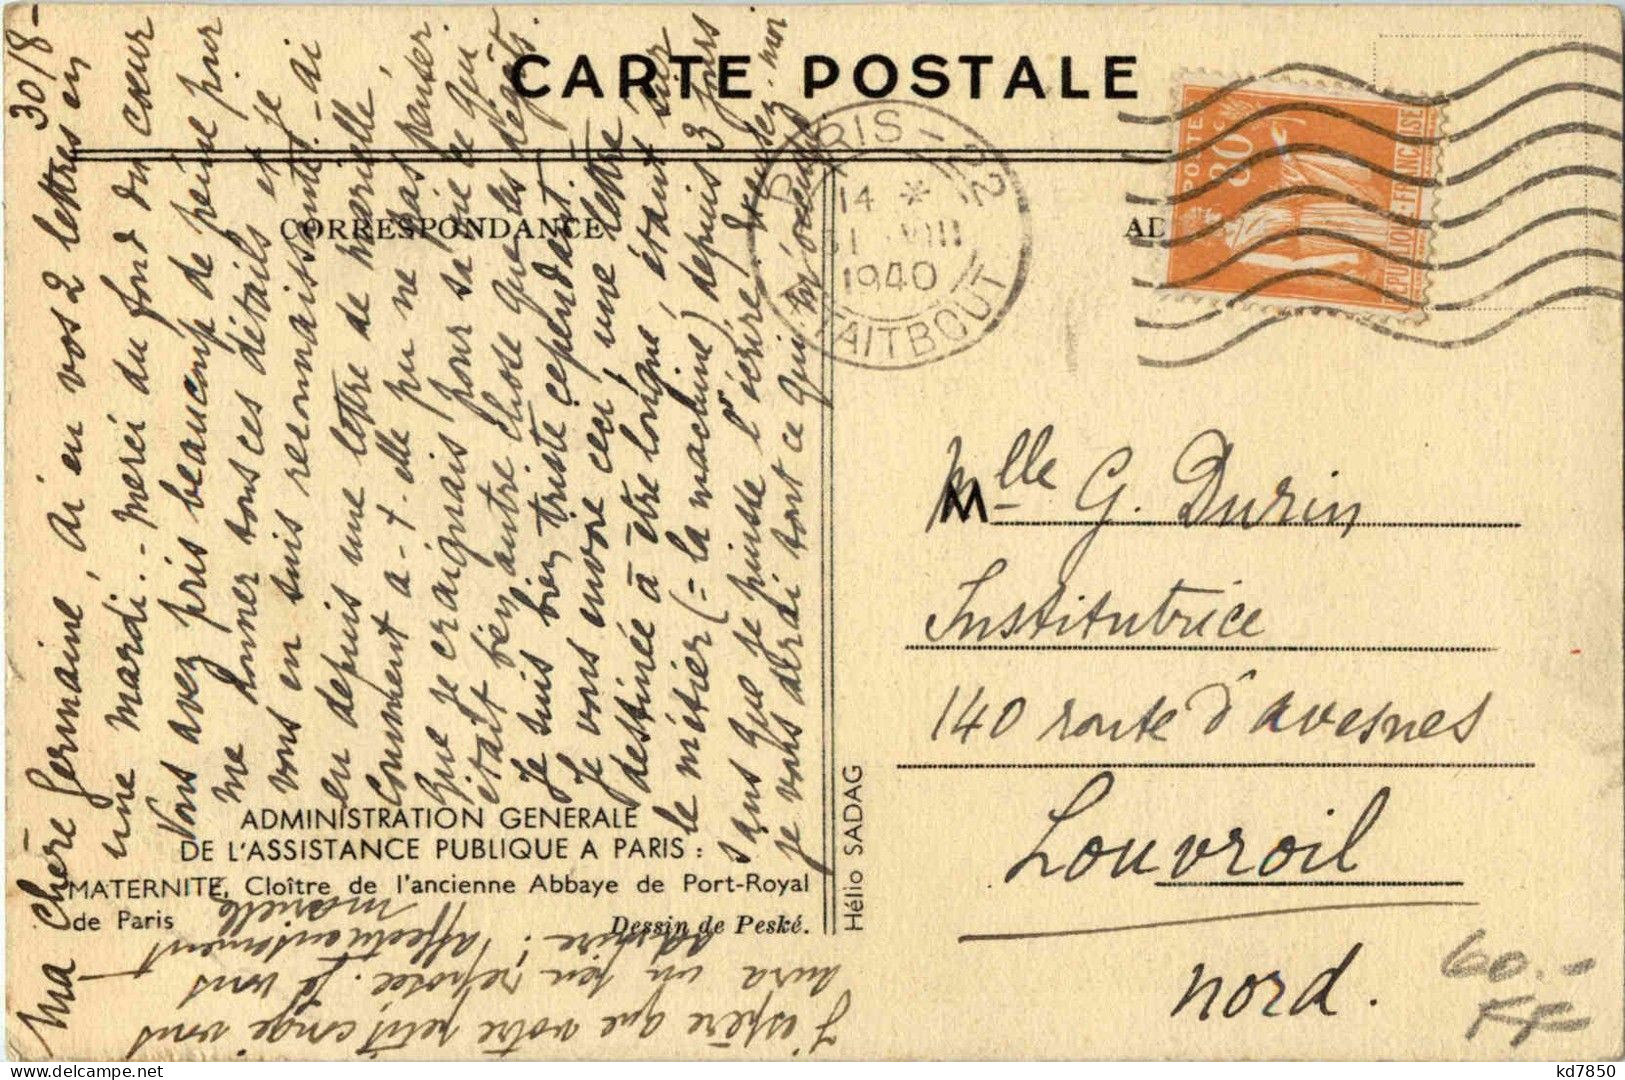 CARTE POSTALE
CORRESPONDANCE
AD
PARIS - 22
14 *
VIII
1940
TAITBOUT
POSTE
80
REPUBLIQUE-FRANÇAISE
30/8-
Ma chère Germaine, Ai eu vos 2 lettres en
une mardi.- Merci du fond du cœur
Vous avez pris beaucoup de peine pour
me donner tous ces détails et je
vous en suis reconnaissante.- ai
eu depuis une lettre de Marielle
Comment a-t-elle pu ne pas penser
que je craignais pour sa vie ce qui
était bien autre chose que les dégâts.
Je suis bien triste cependant.
Je vous envoie ceci, une lettre
destinée à être longue, étant sur
le métier (= la machine) depuis 3 jours
sans que je puisse l'écrire. Excusez-moi
je vous dirai tout ce qui m'
J'espère que votre petit congé vous
aura un peu reposée. Je vous
affectueusement
ADMINISTRATION GENERALE
DE L'ASSISTANCE PUBLIQUE A PARIS :
MATERNITE, Cloître de l'ancienne Abbaye de Port-Royal
de Paris
Dessin de Peské.
Hélio SADAG
Mlle G. Durin
Institutrice
140 route d'avesnes
Louvroil
nord.
60.-
FF
kd7850